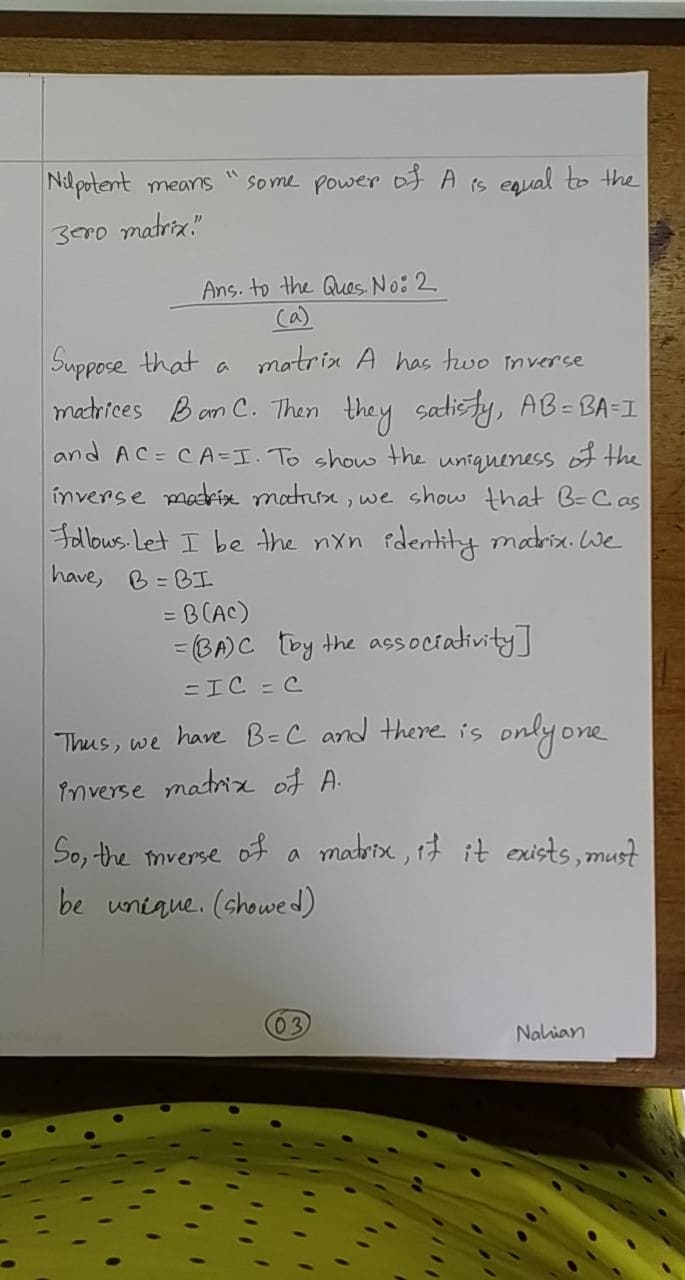 Nilpotent means "some power of A is equal to the
zero matrix."
Ans. to the Ques. No: 2
(a)
Suppose that a matrix A has two inverse
matrices B an C. Then they satisfy, AB = BA = I
and AC = CA = I. To show the uniqueness of the
inverse matrix matrix, we show that B = C as
follows. Let I be the n×n identity matrix. We
have, B = BI
= B(AC)
= (BA)C [by the associativity]
= IC = C
Thus, we have B = C and there is only one
inverse matrix of A.
So, the inverse of a matrix, if it exists, must
be unique. (showed)
03
Nahian